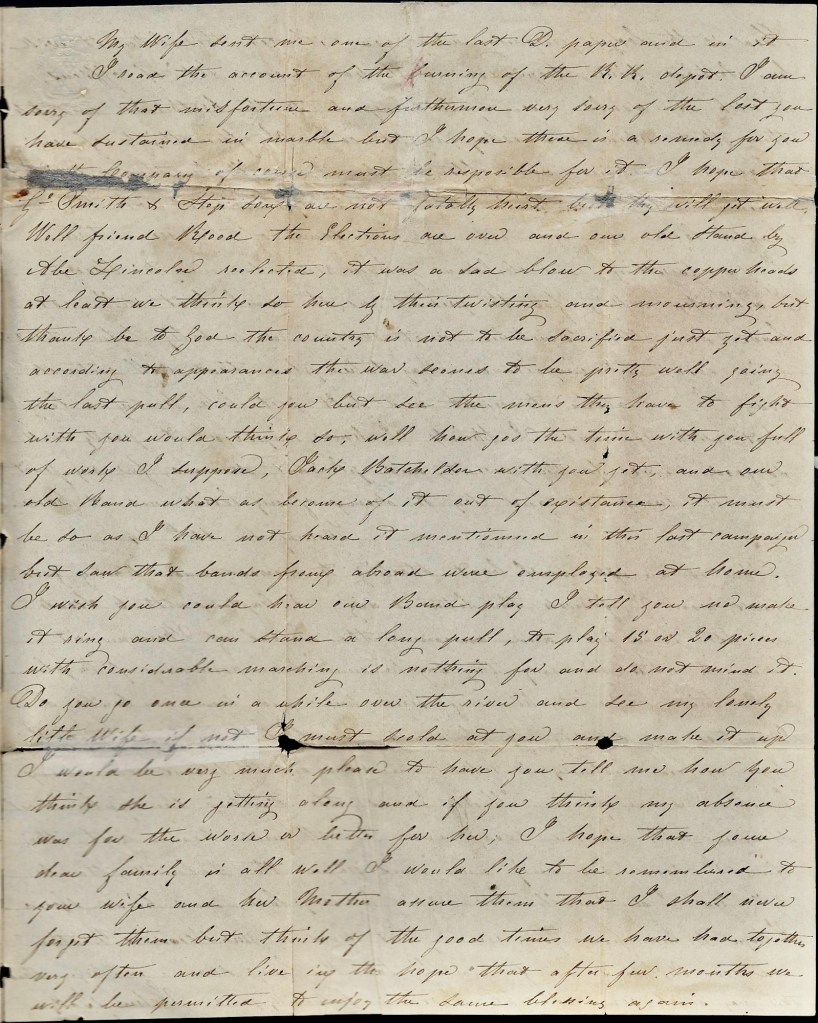 My Wife sent me one of the last D. papers and in it
I read the account of the burning of the R. R. depot. I am
sorry of that misfortune and furthermore very sorry of the lost you
have sustained in marble but I hope there is a remedy for you
Company of course must be resposible for it. I hope that
Smith & Step Son are not fatally hurt but they will get well.
Well friend the Elections are over and our old Stand by
Abe Lincoln reelected, it was a sad blow to the copper heads
at least we think so here by their twisting and mourning, but
thanks be to God the country is not to be sacrified just yet and
according to appearances the war seems to be pretty well going
the last pull, could you but see the mens they have to fight
with you would think so, well how gos the time with you full
of work I suppose, Jack Batchelder with you yet, and our
old Band what as become of it out of existance, it must
be so as I have not heard it mentionned in this last campaign
but saw that bands from abroad were employed at home.
I wish you could hear our Band play I tell you we make
it ring and can stand a long pull, to play 15 or 20 pieces
with considerable marching is nothing for and do not mind it.
Do you go once in a while over the river and see my lonely
little Wife if not I must scold at you and make it up
I would be very much please to have you tell me how you
think she is getting along and if you think my absence
was for the worse or better for her, I hope that your
dear family is all well I would like to be remembered to
your wife and her Mother assure them that I shall never
forget them but think of the good times we have had together
very often and live in the hope that after few months we
will be permitted to enjoy the same blessing again.